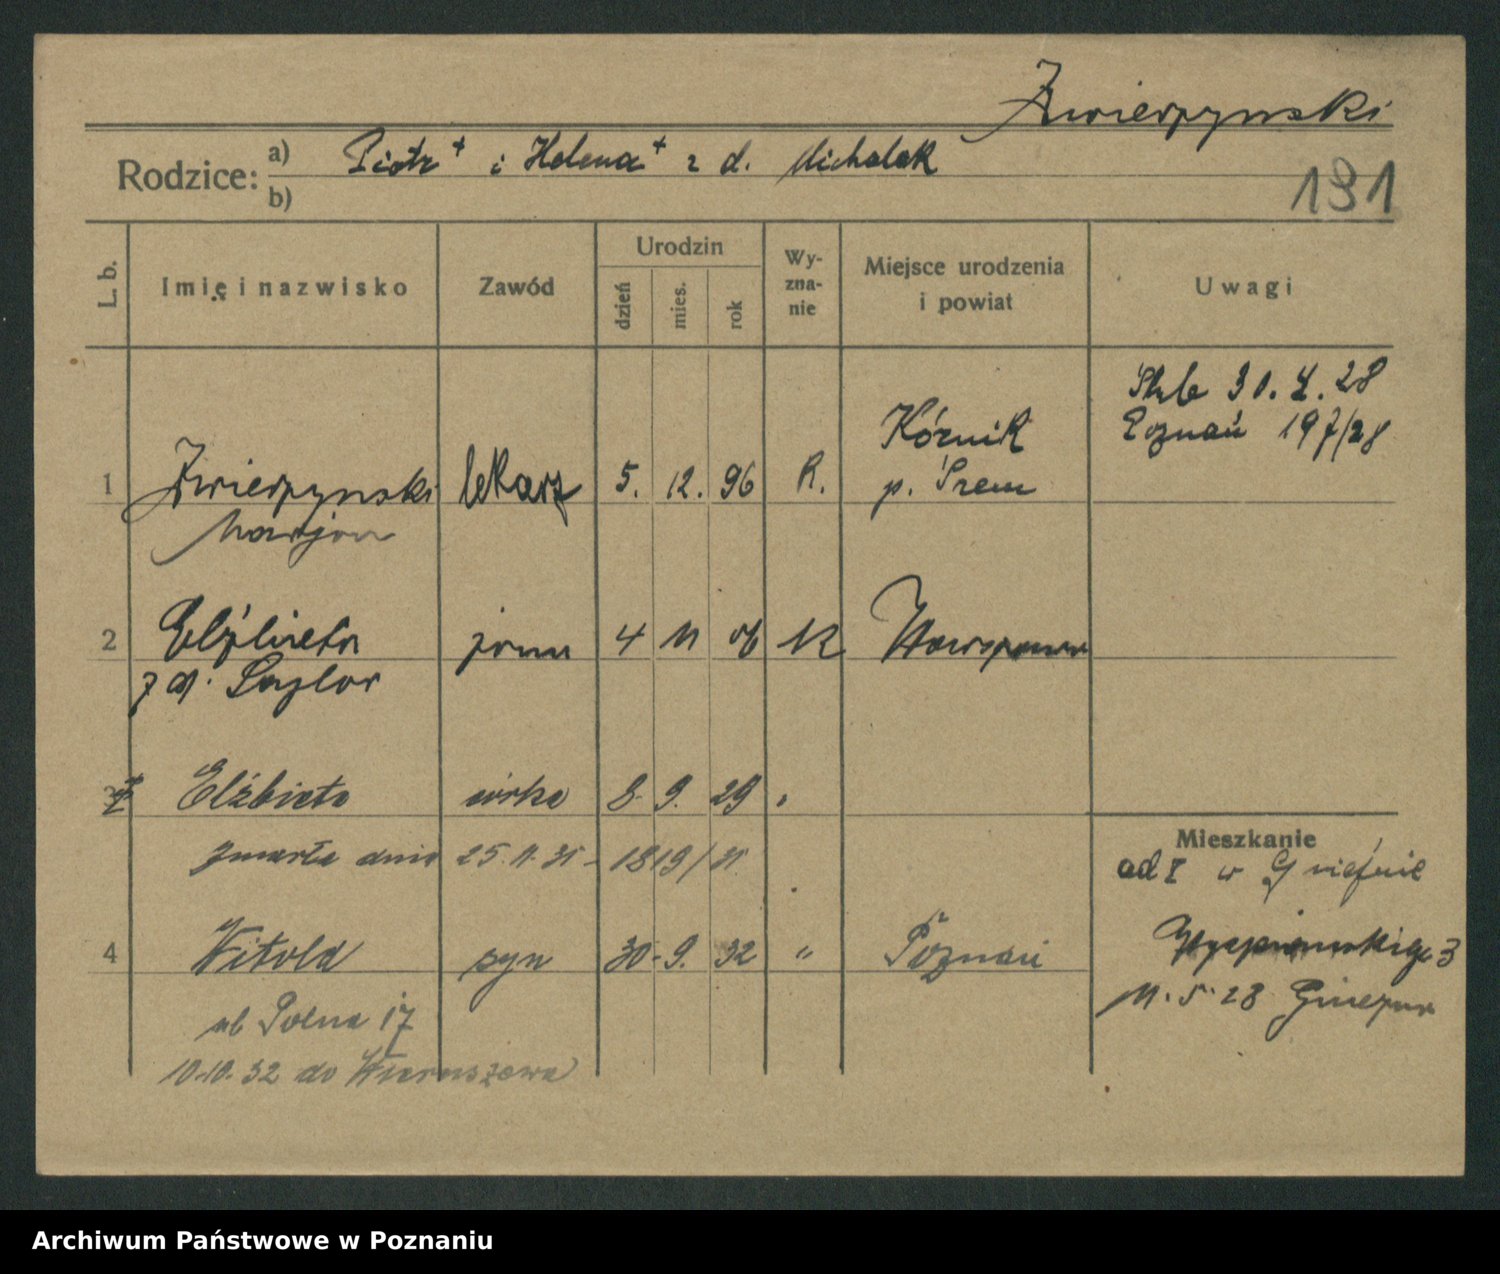 Zwierzynski
Rodzice: a) Piotr + i Helena + z d. Michalak
b)
191
L. b. Imię i nazwisko Zawód Urodzin dzień mies. rok Wyznanie Miejsce urodzenia i powiat Uwagi
Ślub 30. 4. 28
Poznań 197/28
1 Zwierzynski lekarz 5. 12. 96 R. Kórnik
p. Śrem
Marjan
2 Elżbieta żona 4 11 06 R Warszawa
z d. Saylor
3 Elżbieta córka 8. 9. 29 "
zmarła dnia 25. 11. 31 - 1819/31
Mieszkanie
od I w Gnieźnie
4 Witold syn 30. 9. 32 " Poznań
Wyspiańskiego 3
11. 5. 28 Gniezno
ul Polna 17
10.10. 32 do Wieruszowa
Archiwum Państwowe w Poznaniu